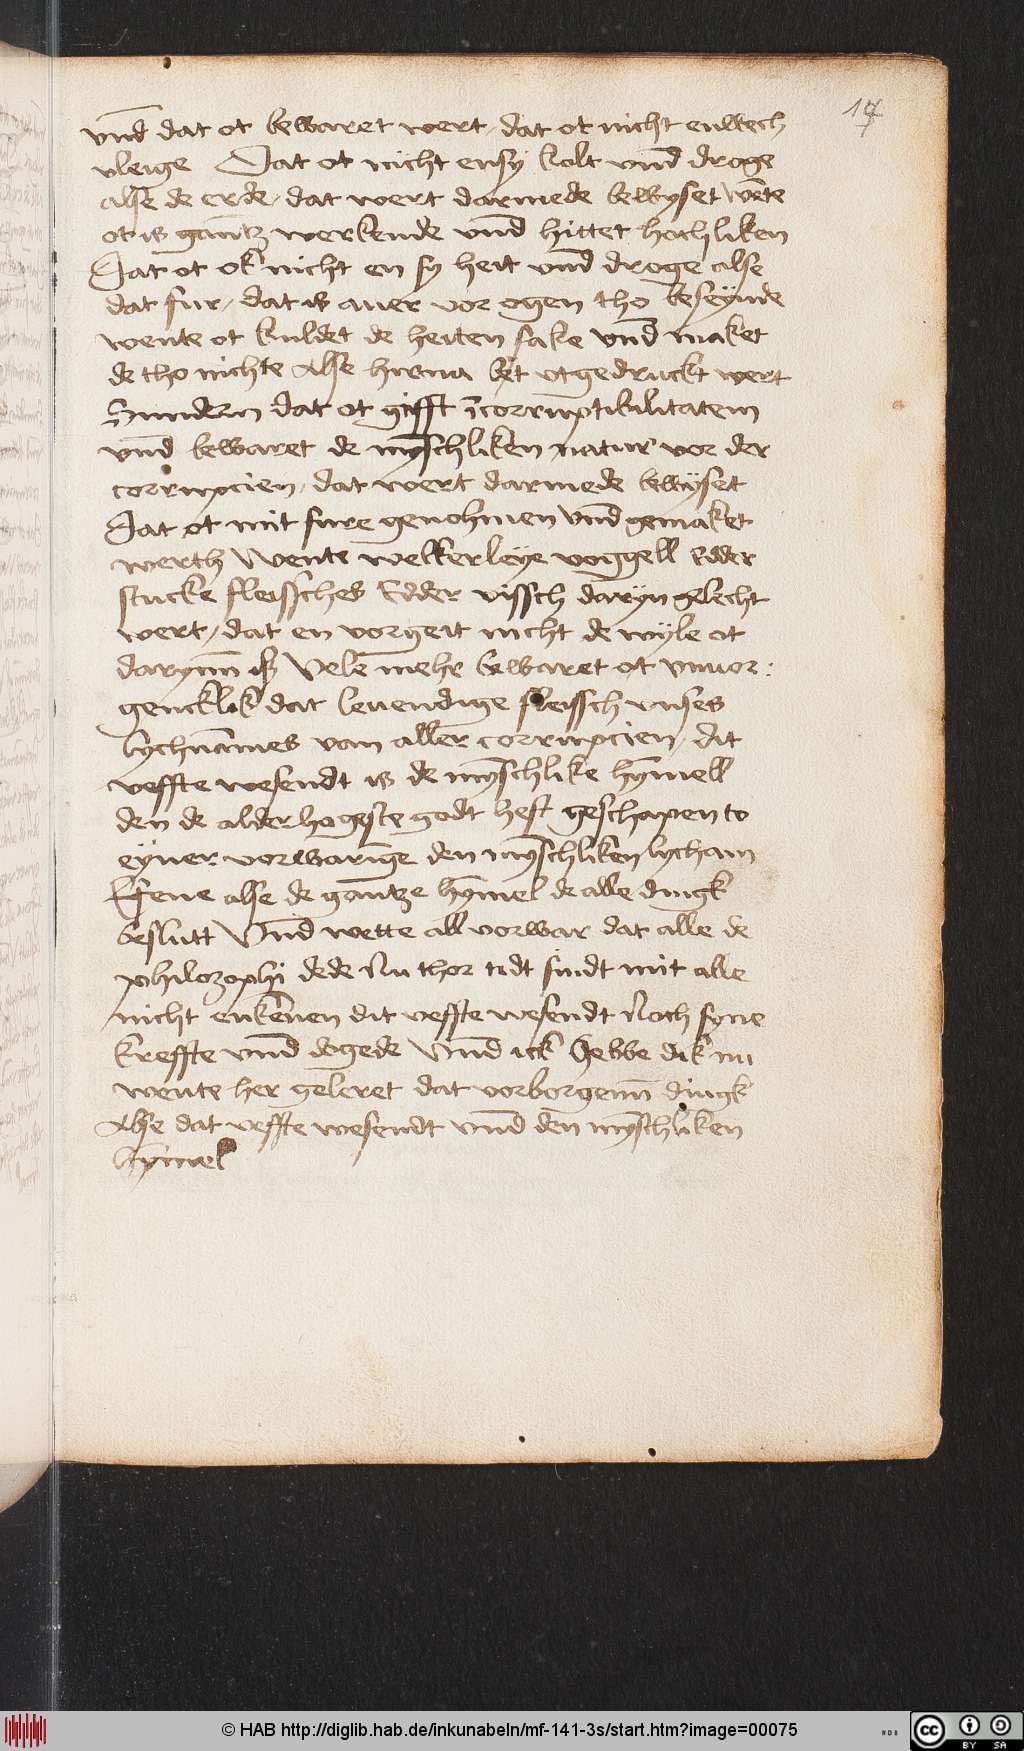 17
vnd dat ot bewaret wert, dat ot nicht enwech
vleige Dat ot nicht ensÿ kolt vnd droge
alse de erde, dat wert darmede bewyset wēte
ot is gantz werkende vnd hittet hochliken
Dat ot ok nicht en sy heit vnd droge alse
dat fur, dat is auer vor ogen tho beseÿnde
wente ot kuldet de heiten sake vnd maket
de tho nichte Alse hirna bet vtgedruckt wert
Sundern dat ot gifft īcorruptibilitatem
vnd bewaret de myschliken natur vor der
corrupcien, dat wert darmede bewÿset
Dat ot mit fure genohmen vnd gemaket
werth Wente welkerleÿe voggell Edder
stucke fleissches Edder vissch darÿn gelecht
wert, dat en vorgeit nicht de wÿle ot
darynn iß Vele mehr bewaret ot vnuor:
gencklik dat leuendige fleissch vnses
lychnāmes van aller corrupcien, dit
veffte wesendt is de mȳschlike hȳmell
den de alderhogeste godt heft geschapen to
eÿner vorwaringe den mȳschliken lycham
Efene alse de gantze hȳmel de alle dingk
beslutt Vnd wette all vorwar dat alle de
philozophi dede Nu thor tidt sindt mit alle
nicht enkēnen dit veffte wesendt Noch syne
kreffte vnd dogede Vnd ick hebbe dik nu
wente her geleret dat vorborgenn dingk
Alse dat veffte wesendt vnd den mȳschliken
hȳmel
© HAB http://diglib.hab.de/inkunabeln/mf-141-3s/start.htm?image=00075
WDB
cc BY SA